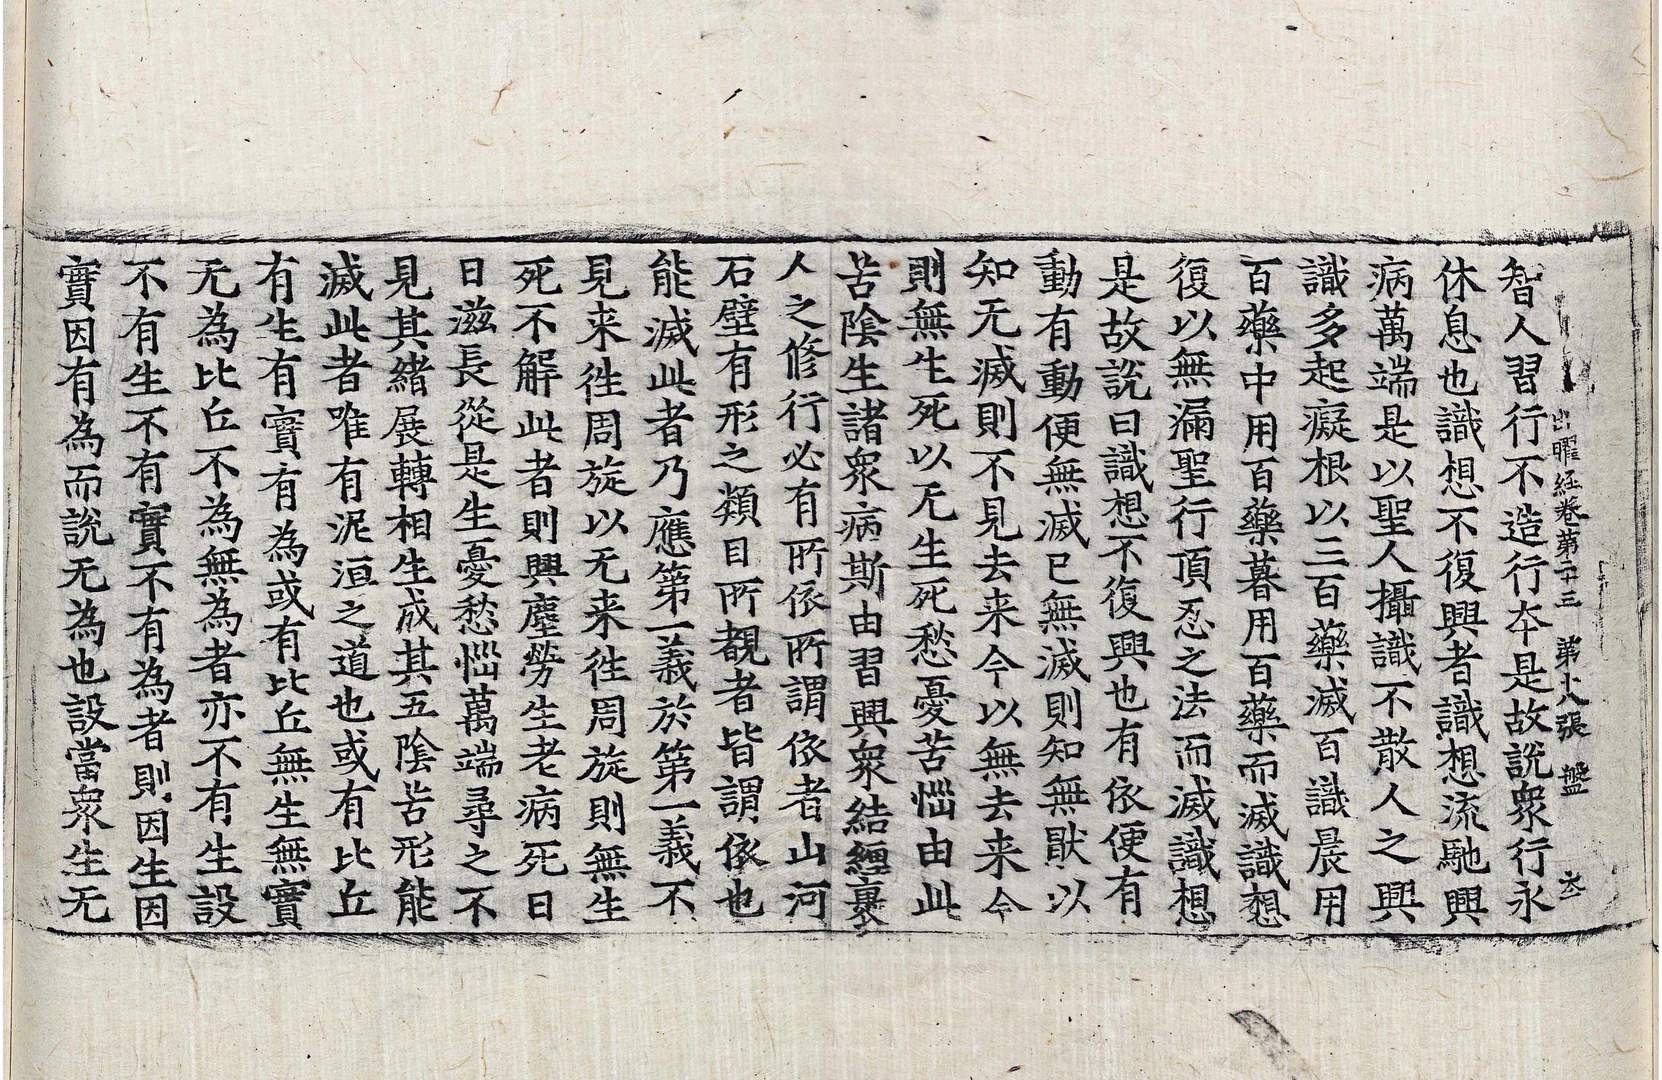 出曜經卷第二十三 第十八張 盤
智人習行不造行本是故說衆行永
休息也識想不復興者識想流馳興
病萬端是以聖人攝識不散人之興
識多起癡根以三百藥滅百識晨用
百藥中用百藥暮用百藥而滅識想
復以無漏聖行頂忍之法而滅識想
是故說曰識想不復興也有依便有
動有動便無滅已無滅則知無猒以
知无滅則不見去来今以無去来今
則無生死以无生死愁憂苦惱由此
苦陰生諸衆病斯由習興衆結纏裹
人之修行必有所依所謂依者山河
石壁有形之類目所覩者皆謂依也
能滅此者乃應第一義於第一義不
見来往周旋以无来往周旋則無生
死不解此者則興塵勞生老病死日
日滋長從是生憂愁惱萬端尋之不
見其緒展轉相生成其五陰苦形能
滅此者唯有泥洹之道也或有比丘
有生有實有為或有比丘無生無實
无為比丘不為無為者亦不有生設
不有生不有實不有為者則因生因
實因有為而說无為也設當衆生无